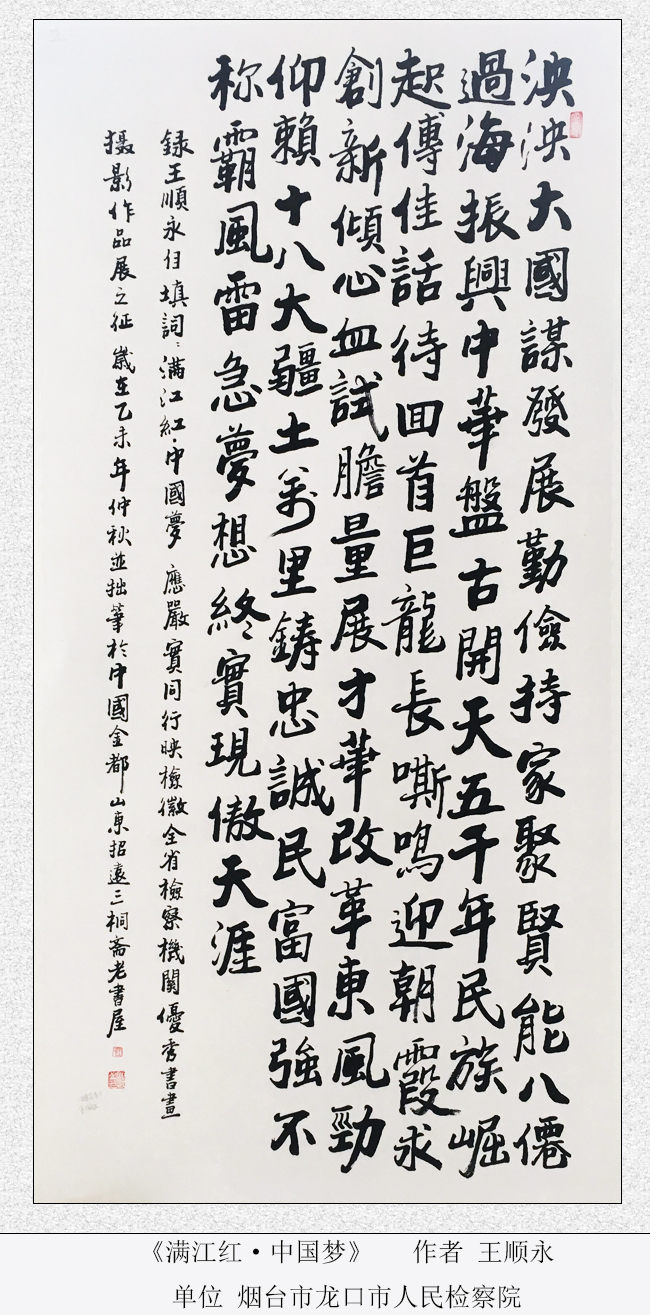 泱泱大國謀發展勤儉持家聚賢能八僊
過海振興中華盤古開天五千年民族崛
起傳佳話待囬首巨龍長嘶鳴迎朝霞求
創新傾心血試膽量展才華改革東風勁
仰賴十八大疆土萬里鑄忠誠民富國強不
称霸風雷急夢想終實現傲天涯
録王順永自填詞：满江紅·中國夢 應嚴實同行映檢徽全省檢察機關優秀書畫
摄影作品展之征 歲在乙未年仲秋並拙筆於中國金都山東招遠三桐斋老書屋
《满江红·中国梦》 作者 王顺永
单位 烟台市龙口市人民检察院